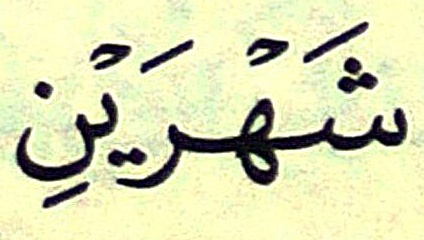 شَهْرَيْنِ